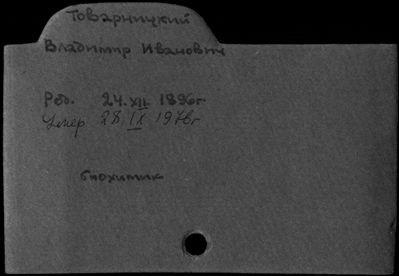 Товарницкий
Владимир Иванович
Род. 24.XII. 1896г
Умер 28.IX 1978г
биохимик